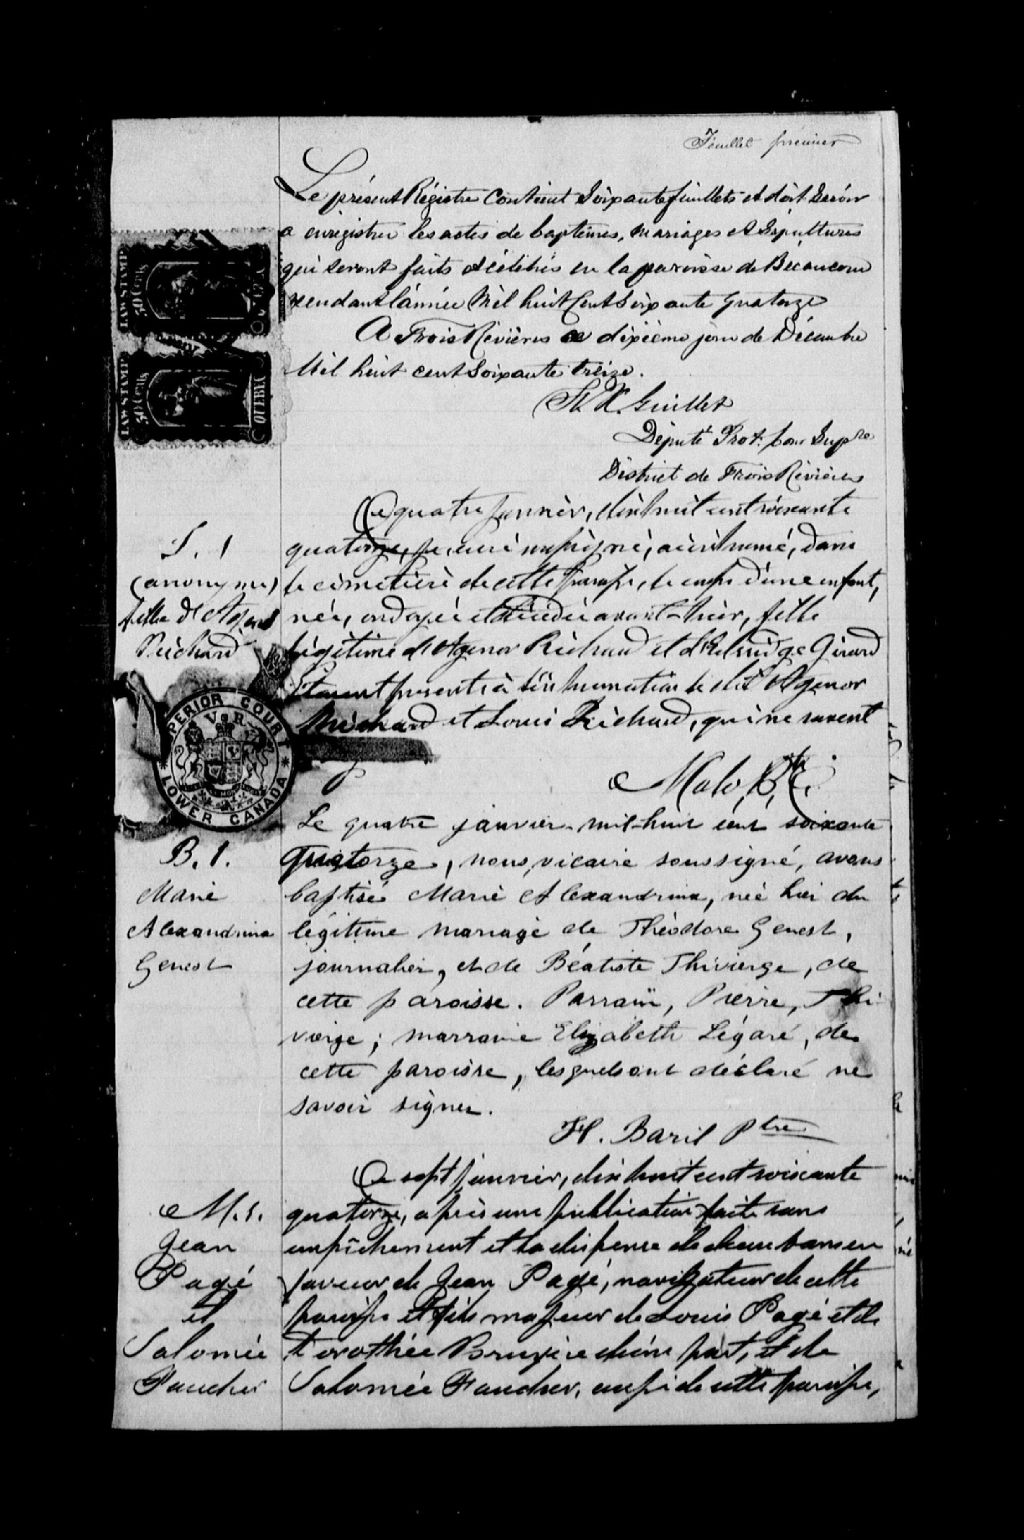 Feuillet premier
Le présent Régistre contient Soixante feuillets et doit servir
a enrégistrer les actes de baptêmes, mariages et Sépultures
qui seront faits et célébrés en la paroisse de Bécancour
pendant l'année Mil huit Cent Soixante Quatorze
A Trois Rivières ce dixième jour de Décembre
Mil huit cent Soixante treize.
Guillet
Député Prot. Cour Supre
District de Trois Rivières
LAW STAMP
QUEBEC
LAW STAMP
QUEBEC
S. 1
(anonyme)
fille d'Agenor
Richard
Ce quatre janvier, dix huit cent soixante
quatorze, je, curé soussigné, ai inhumé, dans
le cimetière de cette paroisse, le corps d'une enfant,
née, ondoyée et décédée avant-hier, fille
légitime d'Agenor Richard et d'Edwidge Girard
Etaient présents à l'inhumation le dit Agenor
Richard et Louis Richard, qui ne savent
Malo, Ptre
SUPERIOR COURT
V R
LOWER CANADA
B. 1.
Marie
Alexandrina
Genest
Le quatre janvier mil-huit cent soixante
quatorze, nous, vicaire soussigné, avons
baptisé Marie Alexandrina, née hier du
légitime mariage de Théodore Genest,
journalier, et de Béatiste Thivierge, de
cette paroisse. Parrain, Pierre, Thi-
vierge; marraine Elizabeth Légaré, de
cette paroisse, lesquels ont déclaré ne
savoir signer.
H. Baril Ptre
M. 1.
Jean
Pagé
et
Salomée
Faucher
Ce sept janvier, dix huit cent soixante
quatorze, après une publication faite sans
empêchement et la dispense de deux bans en
faveur de Jean Pagé, navigateur de cette
paroisse et fils majeur de Louis Pagé et de
Dorothée Bruyère d'une part, et de
Salomée Faucher, aussi de cette paroisse,